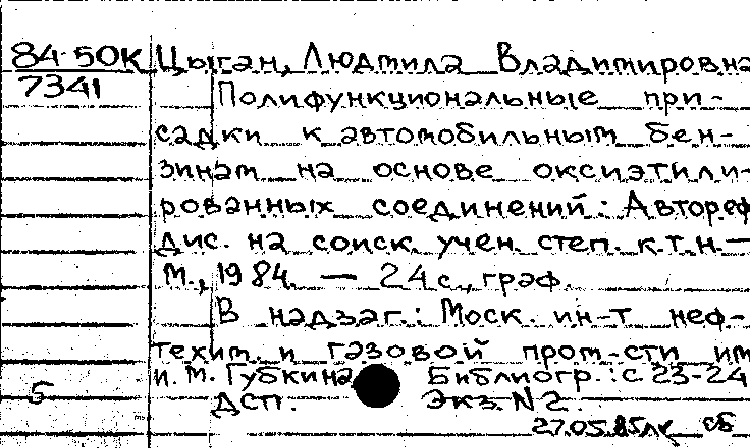 84-50К Цыган, Людмила Владимировна
7341
Полифункциональные при-
садки к автомобильным бен-
зинам на основе оксиэтили-
рованных соединений: Автореф
дис. на соиск учен. степ. к.т.н. —
М., 1984. — 24 с., граф.
В надзаг.: Моск. ин-т неф-
техим. и газовой пром-сти им
и. м. Губкина Библиогр.: с. 23-24
Б ДСП. Экз. N 2.
27.05.85